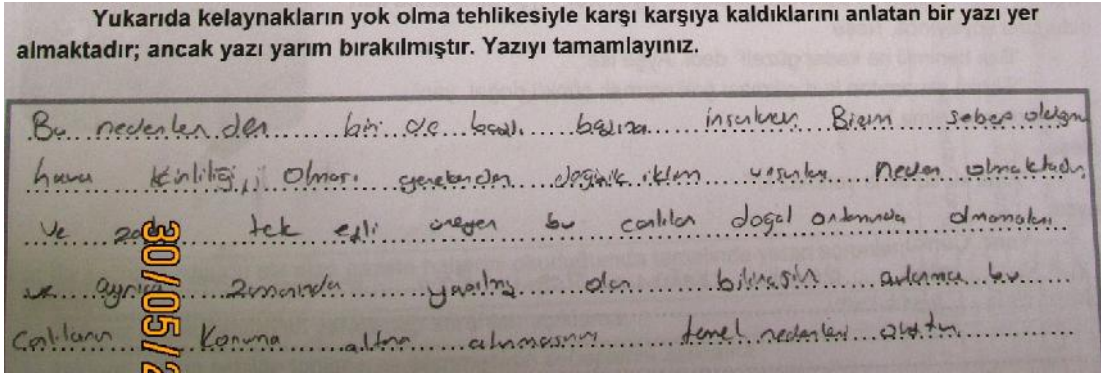 Yukarıda kelaynakların yok olma tehlikesiyle karşı karşıya kaldıklarını anlatan bir yazı yer
almaktadır; ancak yazı yarım bırakılmıştır. Yazıyı tamamlayınız.
Bu nedenlerden biri de başlı başına insanların Bizim sebep olduğu
hava kirliliği, Olması gerekenden değişik iklim neden olmaktadır
ve tek eşli üreyen bu canlılar doğal ortamında olmamaları
ve ayrıca zamanında yapılmış olan bilinçsiz avlanma bu
Canlıların Koruma altına alınmasının temel nedenleri
30/05/2